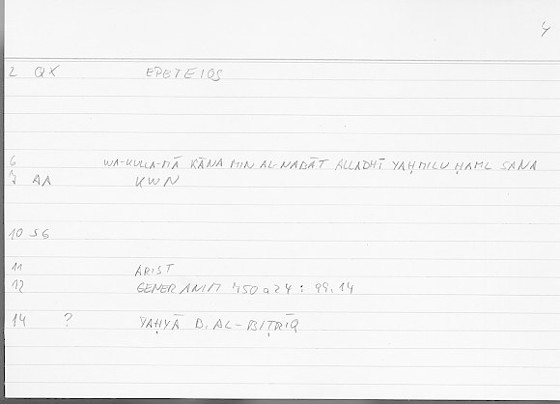 4
2 QX EPETEIOS
6 WA-KULLA-MĀ KĀNA MIN AL-NABĀT ALLADHĪ YAḤMILU ḤAML SANA
7 AA KWN
10 SG
11 ARIST
12 GENER ANIM 750a24 : 99.14
14 ? YAḤYĀ B. AL-BIṬRĪQ